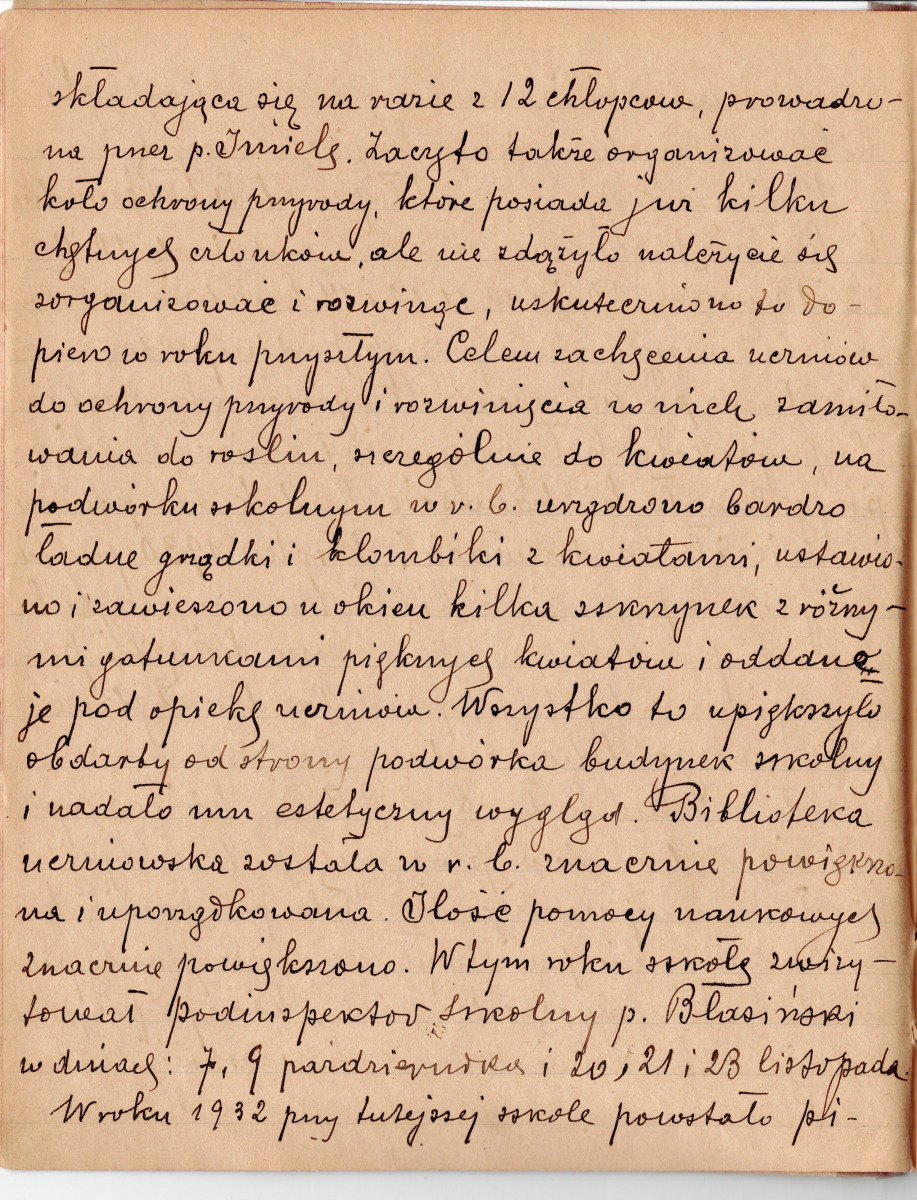 składająca się na razie z 12 chłopców, prowadzo-
na przez p. Imielę. Zaczęto także organizować
koło ochrony przyrody, które posiada już kilku
chętnych członków, ale nie zdążyło należycie się
zorganizować i rozwinąć, uskuteczniono to do-
piero w roku przyszłym. Celem zachęcenia uczniów
do ochrony przyrody i rozwinięcia w nich zamiło-
wania do roślin, szczególnie do kwiatów, na
podwórku szkolnym w r. b. urządzono bardzo
ładne grządki i klombiki z kwiatami, ustawio-
no i zawieszono u okien kilka skrzynek z różny-
mi gatunkami pięknych kwiatów i oddano
je pod opiekę uczniów. Wszystko to upiększyło
obdarty od strony podwórka budynek szkolny
i nadało mu estetyczny wygląd. Biblioteka
uczniowska została w r. b. znacznie powiększo-
na i uporządkowana. Ilość pomocy naukowych
znacznie powiększono. W tym roku szkołę zwizy-
tował podinspektor szkolny p. Błasiński
w dniach: 7, 9 października i 20, 21 i 23 listopada.
W roku 1932 przy tutejszej szkole powstało pi-